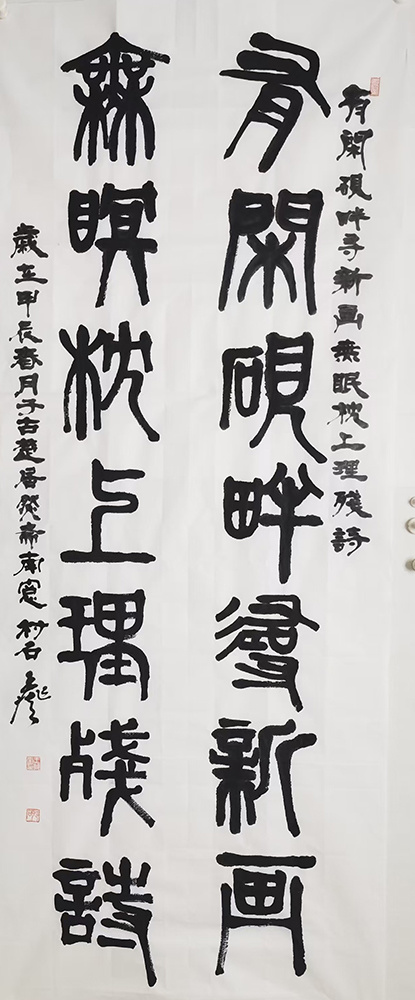 有閑硯畔尋新画
無瞑枕上理殘詩
有閑硯畔尋新畫無眠枕上理殘詩
歲在甲辰春月于古楚
齋南窗村石